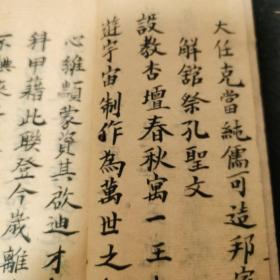 大任克當純儒可造邦家
解舘祭孔聖文
設教杏壇春秋寓一王
遊宇宙制作為萬世之
心維顓蒙資其啟迪才
科甲藉此聯登今歲離